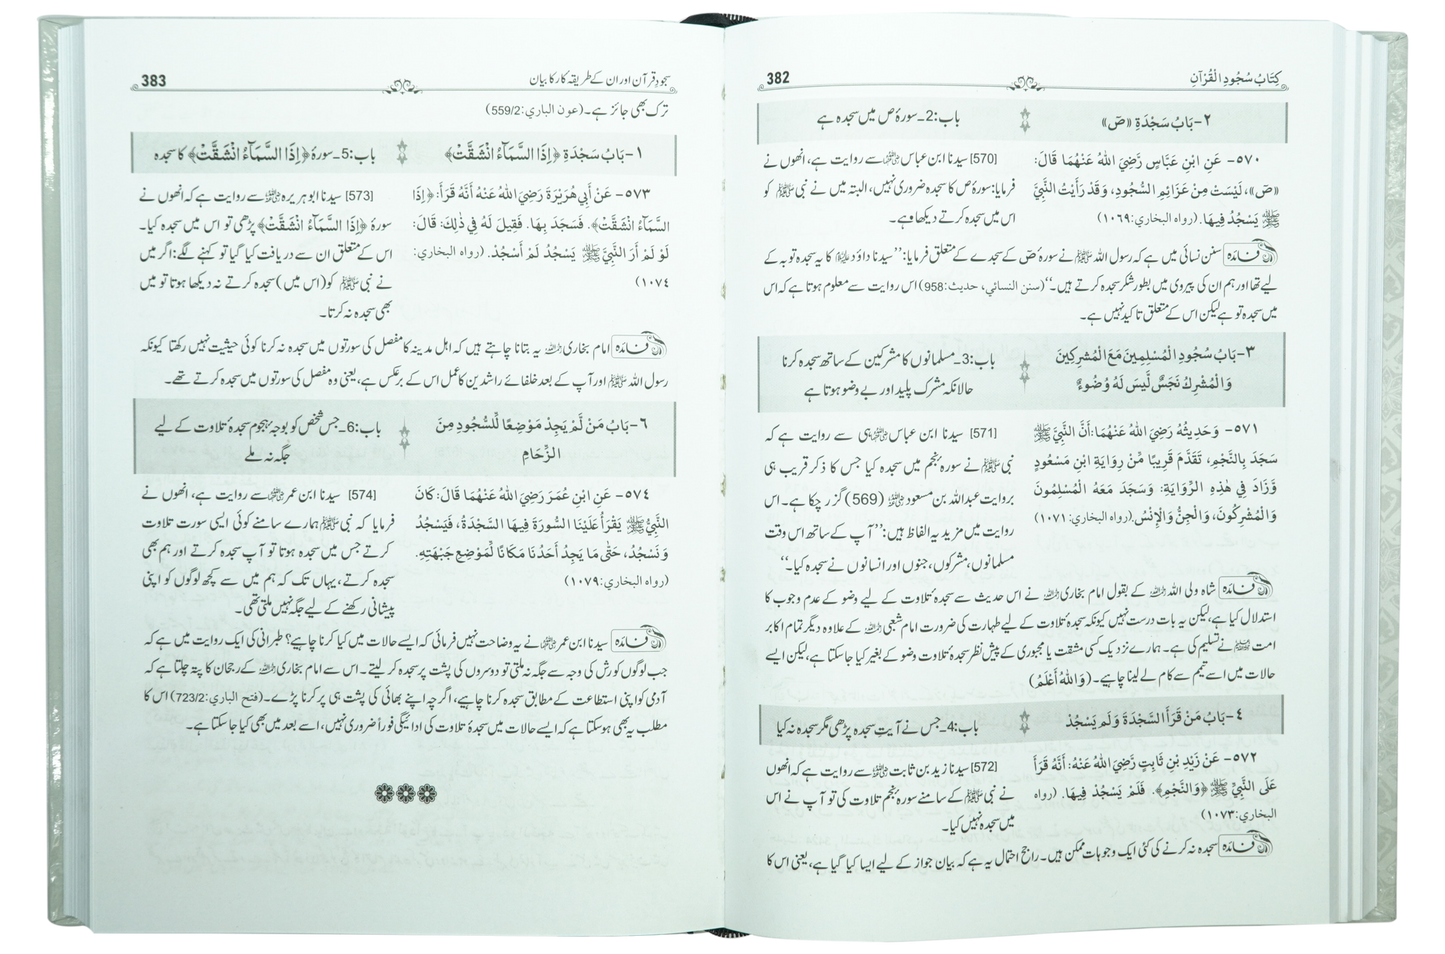 كِتَابُ سُجُودِ الْقُرْآنِ
382
٢- بَابُ سَجْدَةِ «صٓ»
باب: 2۔ سورۂ ص میں سجدہ ہے
٥٧٠- عَنِ ابْنِ عَبَّاسٍ رَضِيَ اللهُ عَنْهُمَا قَالَ:
«صٓ»، لَيْسَتْ مِنْ عَزَائِمِ السُّجُودِ، وَقَدْ رَأَيْتُ النَّبِيَّ
ﷺ يَسْجُدُ فِيهَا. (رواه البخاري: ١٠٦٩)
[570] سیدنا ابن عباس ؓ سے روایت ہے، انھوں نے
فرمایا: سورۂ ص کا سجدہ ضروری نہیں، البتہ میں نے نبی ﷺ کو
اس میں سجدہ کرتے دیکھا ہے۔
فائدہ سنن نسائی میں ہے کہ رسول اللہ ﷺ نے سورۂ صٓ کے سجدے کے متعلق فرمایا: ’’سیدنا داؤد ؑ کا یہ سجدہ توبہ کے
لیے تھا اور ہم ان کی پیروی میں بطور شکر سجدہ کرتے ہیں۔‘‘ (سنن النسائي، حديث: 958) اس روایت سے معلوم ہوتا ہے کہ اس
میں سجدہ تو ہے لیکن اس کے متعلق تاکید نہیں ہے۔
٣- بَابُ سُجُودِ الْمُسْلِمِينَ مَعَ الْمُشْرِكِينَ
وَالْمُشْرِكُ نَجَسٌ لَّيْسَ لَهُ وُضُوءٌ
باب: 3۔ مسلمانوں کا مشرکین کے ساتھ سجدہ کرنا
حالانکہ مشرک پلید اور بے وضو ہوتا ہے
٥٧١- وَحَدِيثُهُ رَضِيَ اللهُ عَنْهُمَا: أَنَّ النَّبِيَّ ﷺ
سَجَدَ بِالنَّجْمِ، تَقَدَّمَ قَرِيبًا مِّنْ رِوَايَةِ ابْنِ مَسْعُودٍ
وَزَادَ فِي هٰذِهِ الرِّوَايَةِ: وَسَجَدَ مَعَهُ الْمُسْلِمُونَ
وَالْمُشْرِكُونَ، وَالْجِنُّ وَالْإِنْسُ. (رواه البخاري: ١٠٧١)
[571] سیدنا ابن عباس ؓ ہی سے روایت ہے کہ
نبی ﷺ نے سورۂ نجم میں سجدہ کیا جس کا ذکر قریب ہی
بروایت عبداللہ بن مسعود ؓ (569) گزر چکا ہے۔ اس
روایت میں مزید یہ الفاظ ہیں: ’’آپ کے ساتھ اس وقت
مسلمانوں، مشرکوں، جنوں اور انسانوں نے سجدہ کیا۔‘‘
فائدہ شاہ ولی اللہ ؒ کے بقول امام بخاری ؒ نے اس حدیث سے سجدۂ تلاوت کے لیے وضو کے عدم وجوب کا
استدلال کیا ہے، لیکن یہ بات درست نہیں کیونکہ سجدۂ تلاوت کے لیے طہارت کی ضرورت امام شعبی ؒ کے علاوہ دیگر تمام اکابر
امت نے تسلیم کی ہے۔ ہمارے نزدیک کسی مشقت یا مجبوری کے پیش نظر سجدۂ تلاوت وضو کے بغیر کیا جا سکتا ہے، لیکن ایسے
حالات میں اسے تیمم سے کام لے لینا چاہیے۔ (وَاللهُ أَعْلَمُ)
٤- بَابُ مَنْ قَرَأَ السَّجْدَةَ وَلَمْ يَسْجُدْ
باب: 4۔ جس نے آیتِ سجدہ پڑھی مگر سجدہ نہ کیا
٥٧٢- عَنْ زَيْدِ بْنِ ثَابِتٍ رَّضِيَ اللهُ عَنْهُ: أَنَّهُ قَرَأَ
عَلَى النَّبِيِّ ﷺ ﴿وَالنَّجْمِ﴾. فَلَمْ يَسْجُدْ فِيهَا. (رواه
البخاري: ١٠٧٣)
[572] سیدنا زید بن ثابت ؓ سے روایت ہے کہ انھوں
نے نبی ﷺ کے سامنے سورۂ نجم تلاوت کی تو آپ نے اس
میں سجدہ نہیں کیا۔
فائدہ سجدہ نہ کرنے کی کئی ایک وجوہات ممکن ہیں۔ راجح احتمال یہ ہے کہ بیان جواز کے لیے ایسا کیا گیا ہے، یعنی اس کا
سجودِ قرآن اور ان کے طریقہ کار کا بیان
383
ترک بھی جائز ہے۔ (عون الباري: 559/2)
١- بَابُ سَجْدَةِ ﴿إِذَا السَّمَآءُ انْشَقَّتْ﴾
باب: 5۔ سورۂ ﴿إِذَا السَّمَآءُ انْشَقَّتْ﴾ کا سجدہ
٥٧٣- عَنْ أَبِي هُرَيْرَةَ رَضِيَ اللهُ عَنْهُ أَنَّهُ قَرَأَ: ﴿إِذَا
السَّمَآءُ انْشَقَّتْ﴾. فَسَجَدَ بِهَا. فَقِيلَ لَهُ فِي ذٰلِكَ: قَالَ:
لَوْ لَمْ أَرَ النَّبِيَّ ﷺ يَسْجُدُ لَمْ أَسْجُدْ. (رواه البخاري:
١٠٧٤)
[573] سیدنا ابو ہریرہ ؓ سے روایت ہے کہ انھوں نے
سورۂ ﴿إِذَا السَّمَآءُ انْشَقَّتْ﴾ پڑھی تو اس میں سجدہ کیا۔
اس کے متعلق ان سے دریافت کیا گیا تو کہنے لگے: اگر میں
نے نبی ﷺ کو (اس میں) سجدہ کرتے نہ دیکھا ہوتا تو میں
بھی سجدہ نہ کرتا۔
فائدہ امام بخاری ؒ یہ بتانا چاہتے ہیں کہ اہل مدینہ کا مفصل کی سورتوں میں سجدہ نہ کرنا کوئی حیثیت نہیں رکھتا کیونکہ
رسول اللہ ﷺ اور آپ کے بعد خلفائے راشدین کا عمل اس کے برعکس ہے، یعنی وہ مفصل کی سورتوں میں سجدہ کرتے تھے۔
٦- بَابُ مَنْ لَّمْ يَجِدْ مَوْضِعًا لِّلسُّجُودِ مِنَ
الزِّحَامِ
باب: 6۔ جس شخص کو بوجہ ہجوم سجدۂ تلاوت کے لیے
جگہ نہ ملے
٥٧٤- عَنِ ابْنِ عُمَرَ رَضِيَ اللهُ عَنْهُمَا قَالَ: كَانَ
النَّبِيُّ ﷺ يَقْرَأُ عَلَيْنَا السُّورَةَ فِيهَا السَّجْدَةُ، فَيَسْجُدُ
وَنَسْجُدُ، حَتّٰى مَا يَجِدُ أَحَدُنَا مَكَانًا لِّمَوْضِعِ جَبْهَتِهِ.
(رواه البخاري: ١٠٧٩)
[574] سیدنا ابن عمر ؓ سے روایت ہے، انھوں نے
فرمایا کہ نبی ﷺ ہمارے سامنے کوئی ایسی سورت تلاوت
کرتے جس میں سجدہ ہوتا تو آپ سجدہ کرتے اور ہم بھی
سجدہ کرتے، یہاں تک کہ ہم میں سے کچھ لوگوں کو اپنی
پیشانی رکھنے کے لیے جگہ نہیں ملتی تھی۔
فائدہ سیدنا ابن عمر ؓ نے یہ وضاحت نہیں فرمائی کہ ایسے حالات میں کیا کرنا چاہیے؟ طبرانی کی ایک روایت میں ہے کہ
جب لوگوں کو رش کی وجہ سے جگہ نہ ملتی تو دوسروں کی پشت پر سجدہ کر لیتے۔ اس سے امام بخاری ؒ کے رجحان کا پتہ چلتا ہے کہ
آدمی کو اپنی استطاعت کے مطابق سجدہ کرنا چاہیے، اگرچہ اپنے بھائی کی پشت ہی پر کرنا پڑے۔ (فتح الباري: 723/2) اس کا
مطلب یہ بھی ہو سکتا ہے کہ ایسے حالات میں سجدۂ تلاوت کی ادائیگی فوراً ضروری نہیں، اسے بعد میں بھی کیا جا سکتا ہے۔